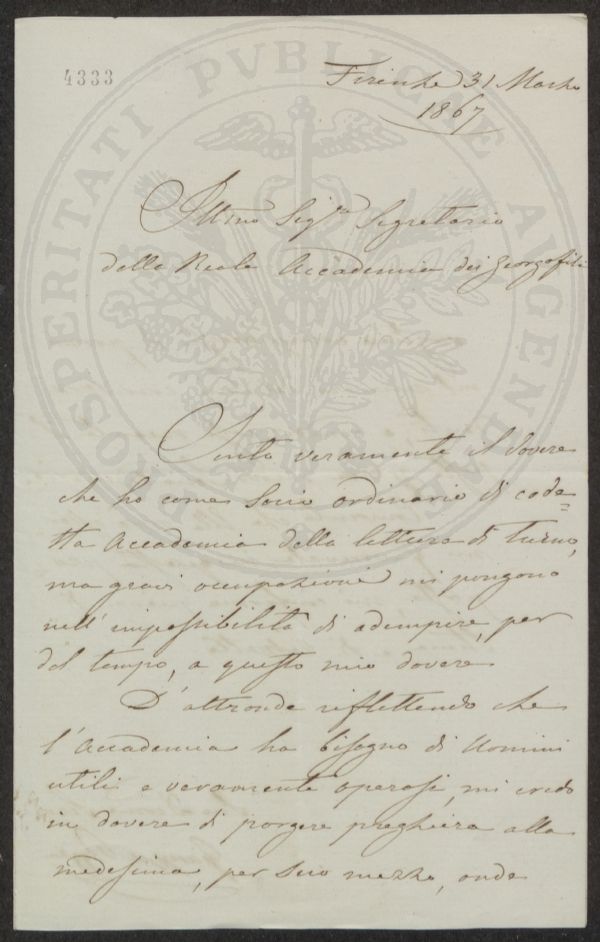 4333
PROSPERITATI PVBLICAE AVGENDAE
Firenze 31 Marzo
1867
Illmo Sigre Segretario
della Reale Accademia dei Georgofili
Sento veramente il dovere
che ho come Socio ordinario di code=
sta Accademia della lettura di turno,
ma gravi occupazioni mi pongono
nell'impossibilità di adempire, per
del tempo, a questo mio dovere
D'altronde riflettendo che
l'Accademia ha bisogno di Uomini
utili e veramente operosi, mi credo
in dovere di porgere preghiera alla
medesima, per suo mezzo, onde